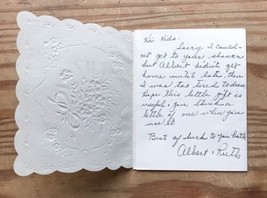 Hi Kids.
Sorry I could
not get to your shower
but Albert didn't get
home until late then
I was too tired to dress
Hope this little gift is
useful & you think a
little of me when you
use it
Best of luck to you both
Albert & Ruth